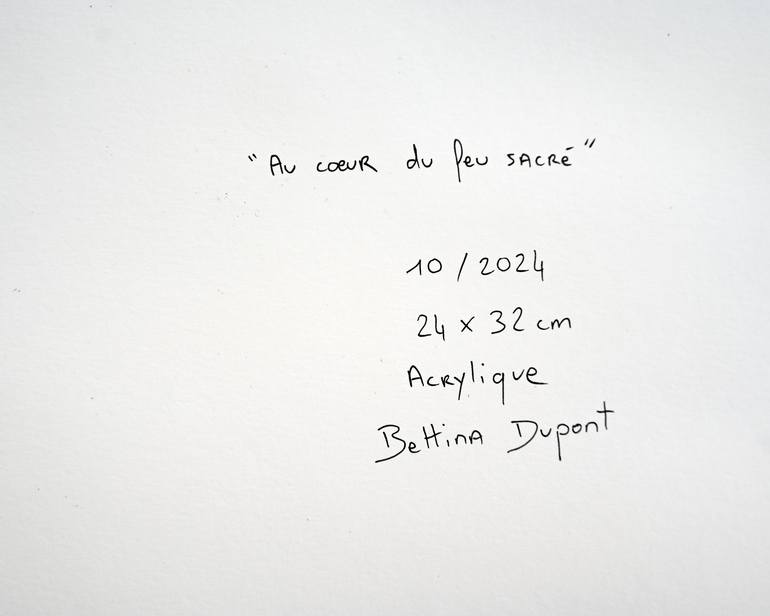 "Au cœur du feu sacré"
10 / 2024
24 x 32 cm
Acrylique
Bettina Dupont